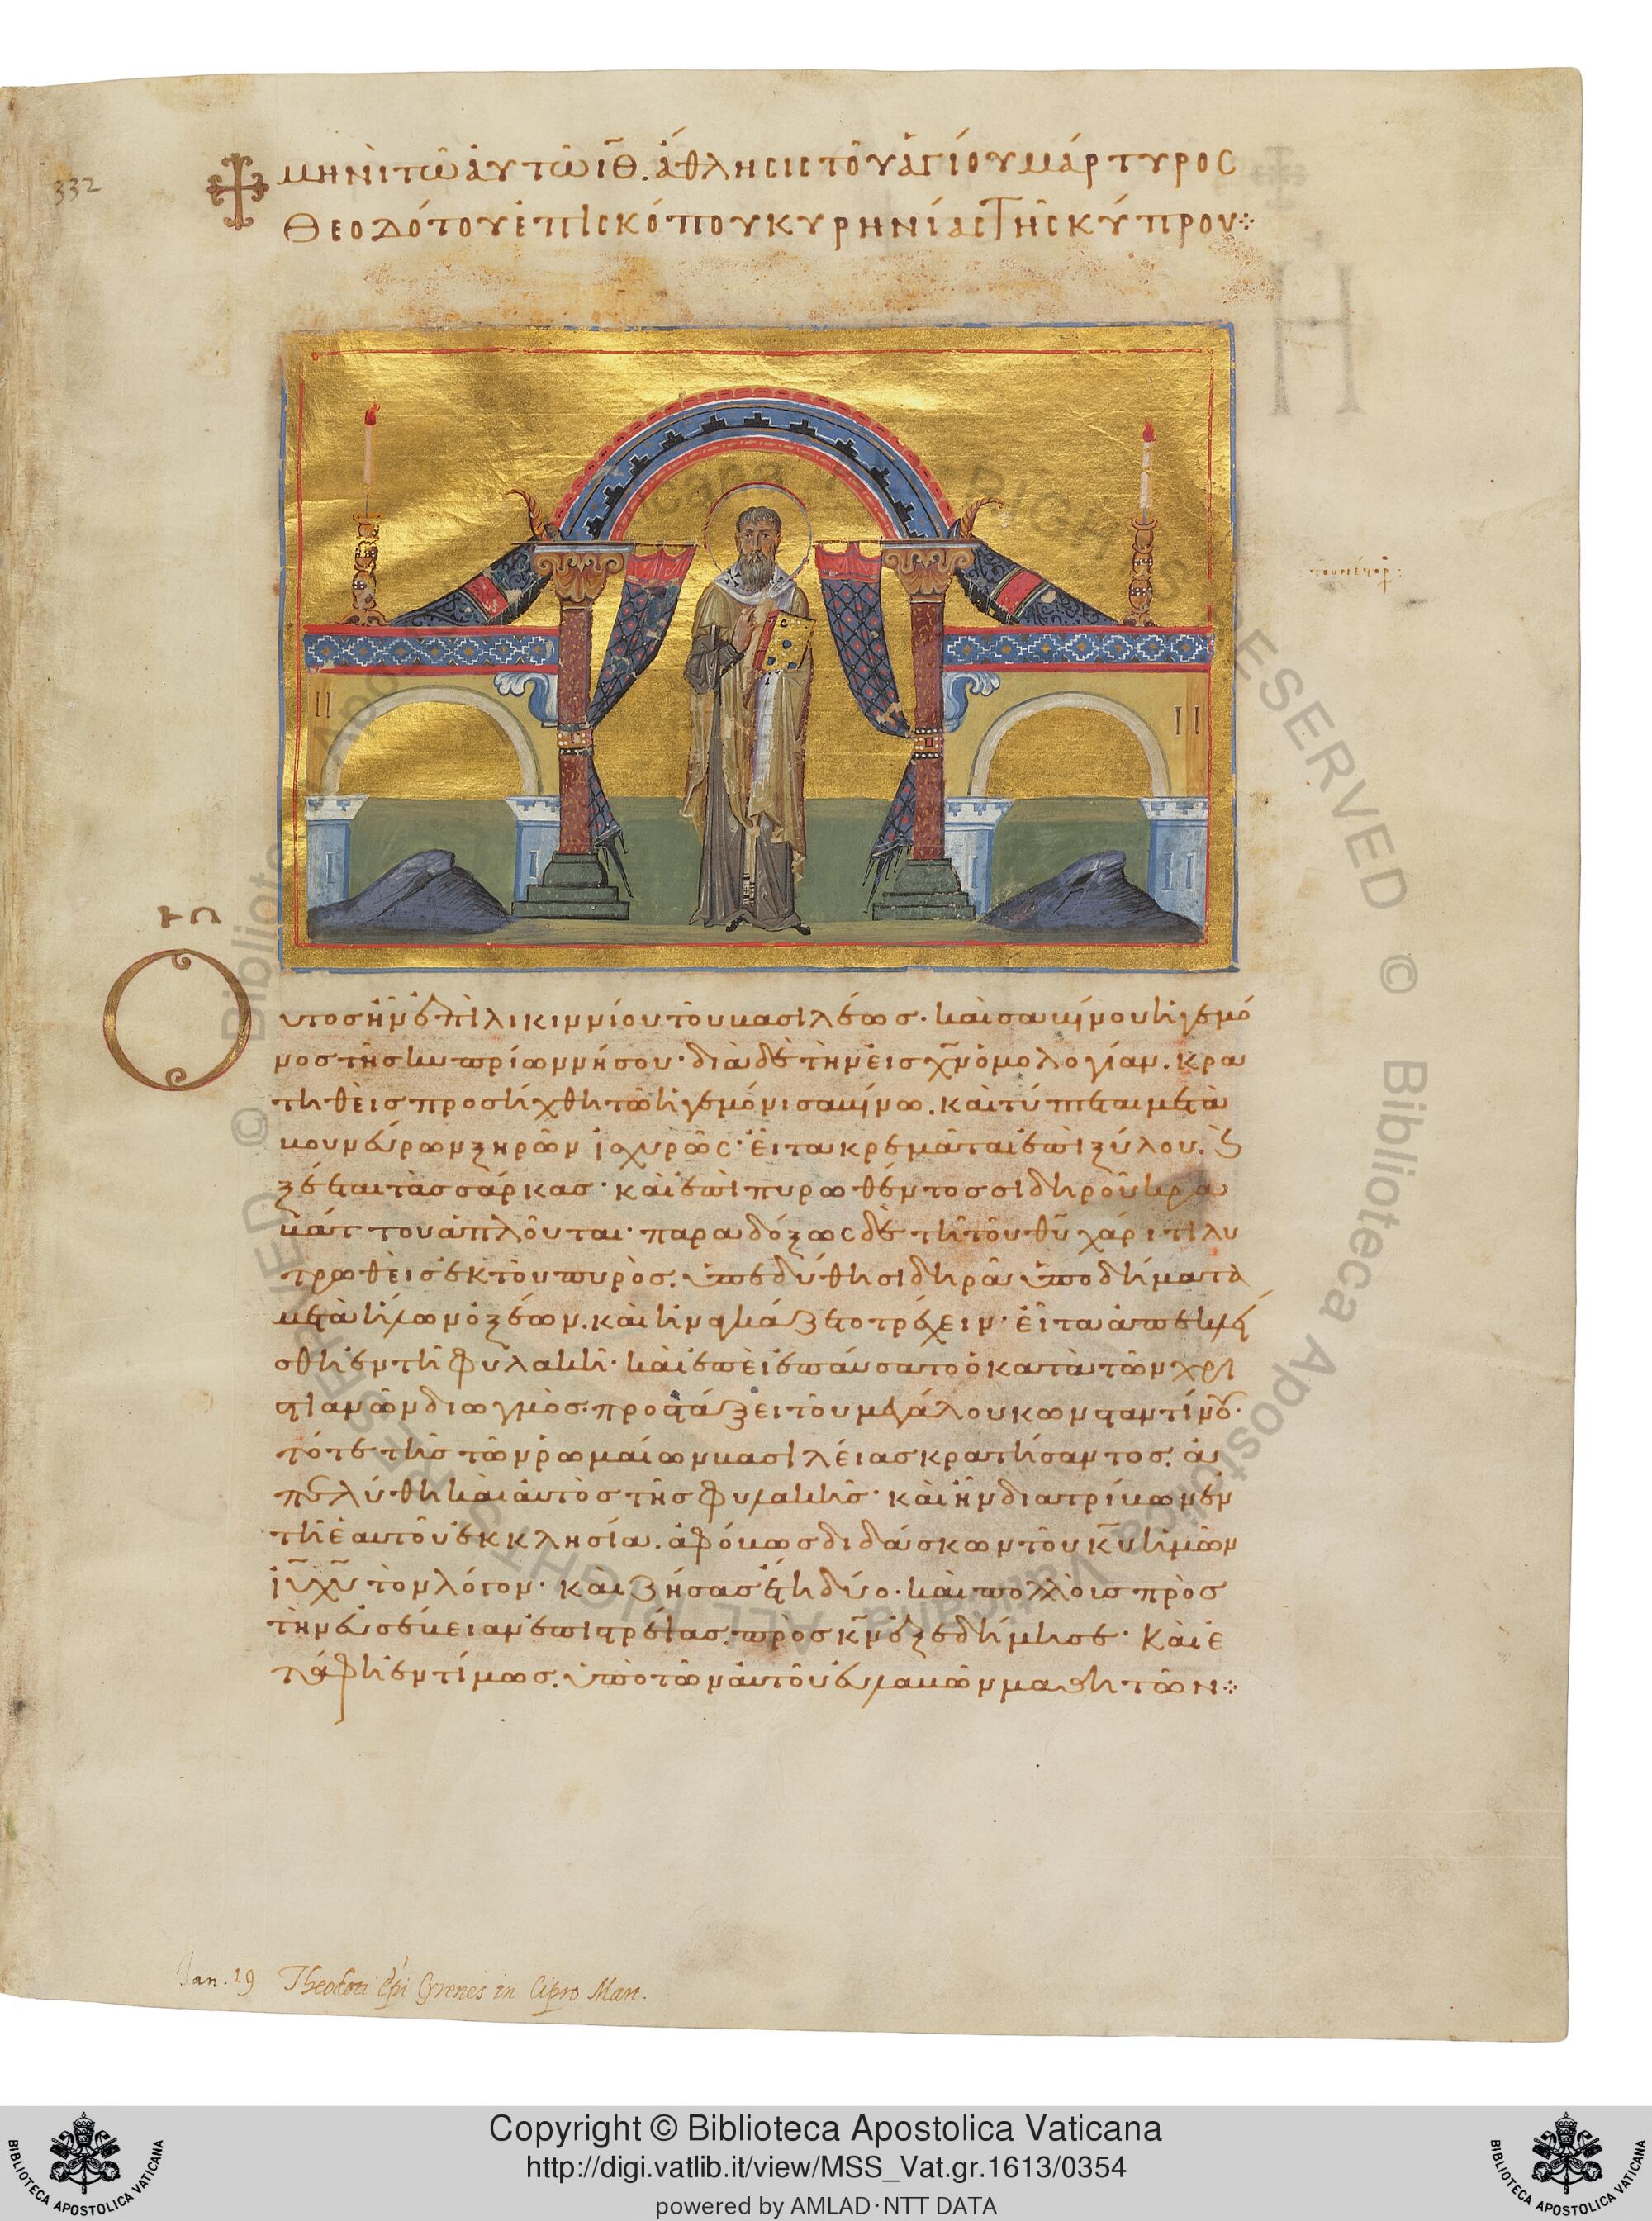 332
μηνὶ τῶ ἀυτῶ ῑθ̄. ἄθλησις τοῦ ἁγίου μάρτυρος
Θεοδότου ἐπισκόπου κυρηνίας τῆς κύπρου⁘
Οὗτος ἦν ἐπὶ λικιννίου τοῦ βασιλέως· καὶ σαβίνου ἡγεμό
νος τῆς κυπρίων νήσου· διὰ δὲ τὴν εἰς χ̄ν ὁμολογίαν. κρα
τηθεὶς προσήχθη τῶ ἡγεμόνι σαβίνω. καὶ τύπτεται μετὰ
βουνεύρων ξηρῶν ἰσχυρῶς· εἶτα κρεμᾶται ἐπὶ ξύλου. καὶ
ξέεται τὰς σάρκας· καὶ ἐπὶ πυρωθέντος σιδηροῦ κρα
βάττου ἁπλοῦται· παραδόξως δὲ τῆ τοῦ θ̄υ χάριτι λυ
τρωθεὶς ἐκ τοῦ πυρὸς. ὑπεδύθη σιδηρᾶ ὑποδήματα
μετὰ ἥλων ὀξέων. καὶ ἠναγκάζετο τρέχειν· εἶτα ἀπεκλεί
σθη ἐν τῆ φυλακῆ· καὶ ἐπεὶ ἐπαύσατο ὁ κατὰ τῶν χρι
στιανῶν διωγμὸς. προστάξει τοῦ μεγάλου κωνσταντίνου·
τότε τῆς τῶν ῥωμαίων βασιλείας κρατήσαντος. ἀ
πελύθη καὶ ἀυτὸς τῆς φυλακῆς· καὶ ἦν διατρίβων ἐν
τῆ ἑαυτοῦ ἐκκλησία. ἀφόβως διδάσκων τοῦ κ̄υ ἡμῶν
ῑυ χ̄υ τὸν λόγον· καὶ ζήσας ἔτη δύο. καὶ πολλοὺς πρὸς
τὴν εὐσέβειαν ἐπιστρέψας. πρὸς κ̄ν ἐξεδήμησε· Καὶ ἐ
τάφη ἐντίμως. ὑπὸ τῶν ἀυτοῦ εὐλαβῶν μαθητῶν⁘
Jan. 19 Theodoti epi Cyrenes in Cipro Mar.
Copyright © Biblioteca Apostolica Vaticana
http://digi.vatlib.it/view/MSS_Vat.gr.1613/0354
powered by AMLAD·NTT DATA
BIBLIOTECA APOSTOLICA VATICANA
BIBLIOTECA APOSTOLICA VATICANA